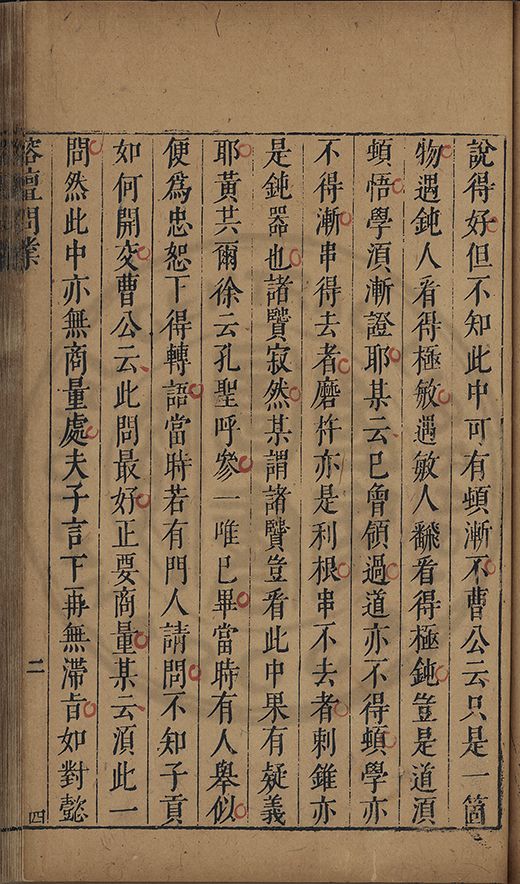 說得好但不知此中可有頓漸不曹公云只是一箇
物遇鈍人看得極敏遇敏人飜看得極鈍豈是道湏
頓悟學湏漸證耶某云巳曾領過道亦不得頓學亦
不得漸串得去者磨杵亦是利根串不去者剌錐亦
是鈍器也諸賢寂然某謂諸賢豈看此中果有疑義
耶黃共爾徐云孔聖呼參一唯巳畢當時有人舉似
便爲忠恕下得轉語當時若有門人請問不知子貢
如何開交曹公云此問最好正要商量某云湏此一
問然此中亦無商量處夫子言下再無滯旨如對懿
榕壇問業
二
四